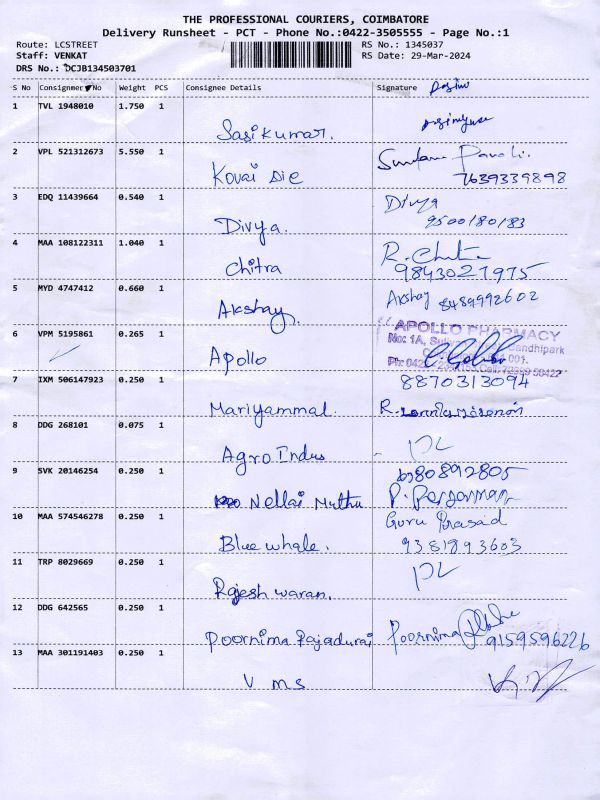 THE PROFESSIONAL COURIERS, COIMBATORE
Delivery Runsheet - PCT - Phone No.:0422-3505555 - Page No.:1
Route: LCSTREET RS No.: 1345037
Staff: VENKAT RS Date: 29-Mar-2024
DRS No.: DCJB134503701
S No Consignmer No Weight PCS Consignee Details Signature
1 TVL 1948010 1.750 1
Sasikumar.
2 VPL 521312673 5.550 1
Kovai Die 7639339898
3 EDQ 11439664 0.540 1 Divya
Divya. 9500180183
4 MAA 108122311 1.040 1 R. Chitra
Chitra 9843027975
5 MYD 4747412 0.660 1 Akshay 8489992602
Akshay.
6 VPM 5195861 0.265 1 APOLLO PHARMACY
No: 1A, Gandhipark
Apollo 001.
7 IXM 506147923 0.250 1 8870313094
Mariyammal.
8 DDG 268101 0.075 1
Agro Indus
9 SVK 20146254 0.250 1
Nellai Muthu
10 MAA 574546278 0.250 1 Guru Prasad
Blue whale. 9381893603
11 TRP 8029669 0.250 1
Rajesh waran.
12 DDG 642565 0.250 1
Poornima Rajadurai Poornima 9159596226
13 MAA 301191403 0.250 1
V ms